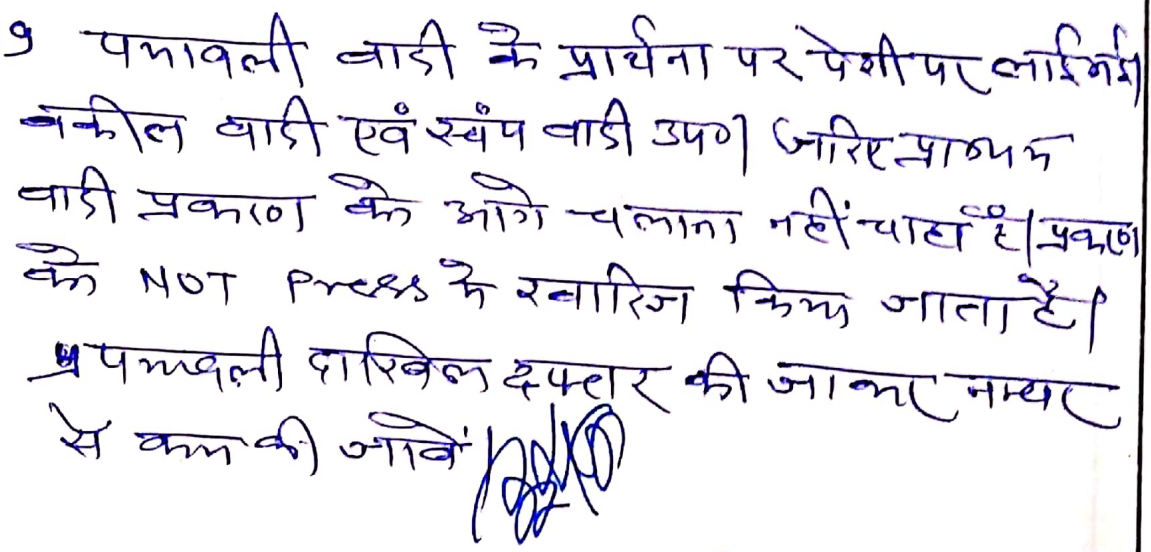 9 पत्रावली वादी के प्रार्थना पर पेशी पर लाई गई।
वकील वादी एवं स्वंय वादी उप0। जरिए प्रा०पत्र
वादी प्रकरण को आगे चलाना नहीं चाहता है। प्रकरण
को NOT Press में खारिज किया जाता है।
पत्रावली दाखिल दफ्तर की जाकर नम्बर
से कम की जावें।